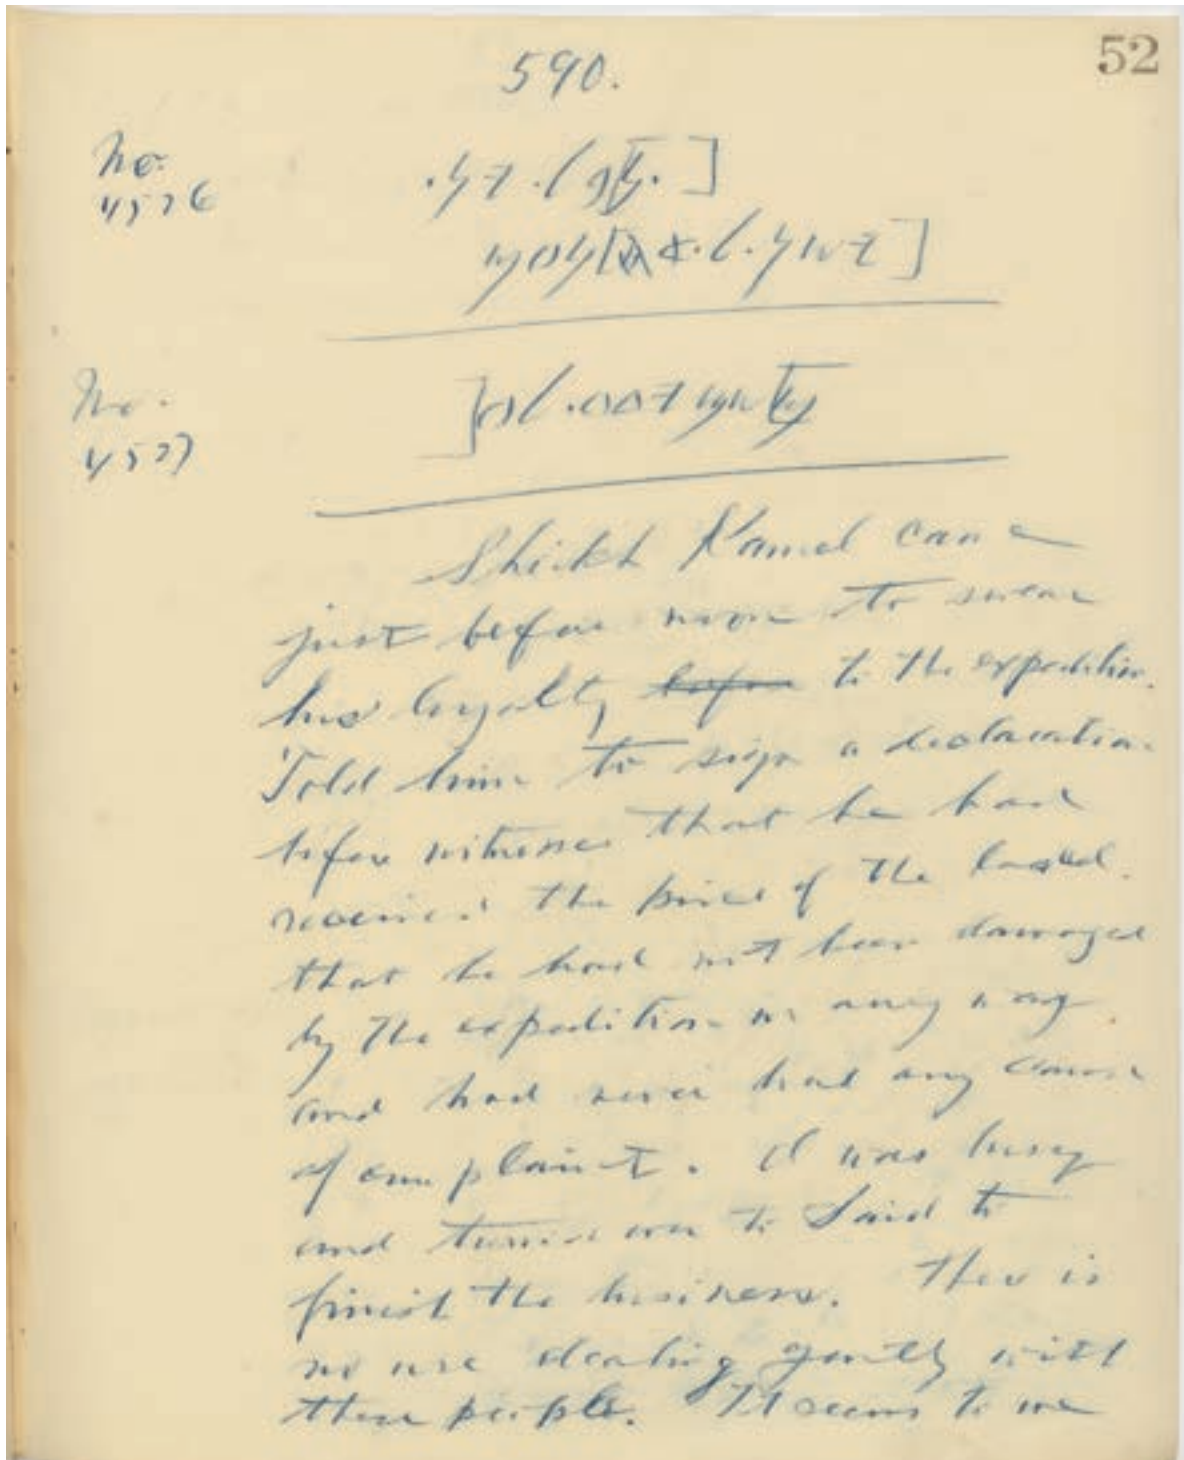 52
590.
No.
4526
No.
4527
Sheikh Kamel came
just before noon to swear
his loyalty to the expedition.
Told him to sign a declaration
before witnesses that he had
received the price of the land.
that he had not been damaged
by the expedition in any way.
and had never had any cause
of complaint. I was busy
and turned over to Said to
finish the business. There is
no use dealing gently with
these people. It seems to me